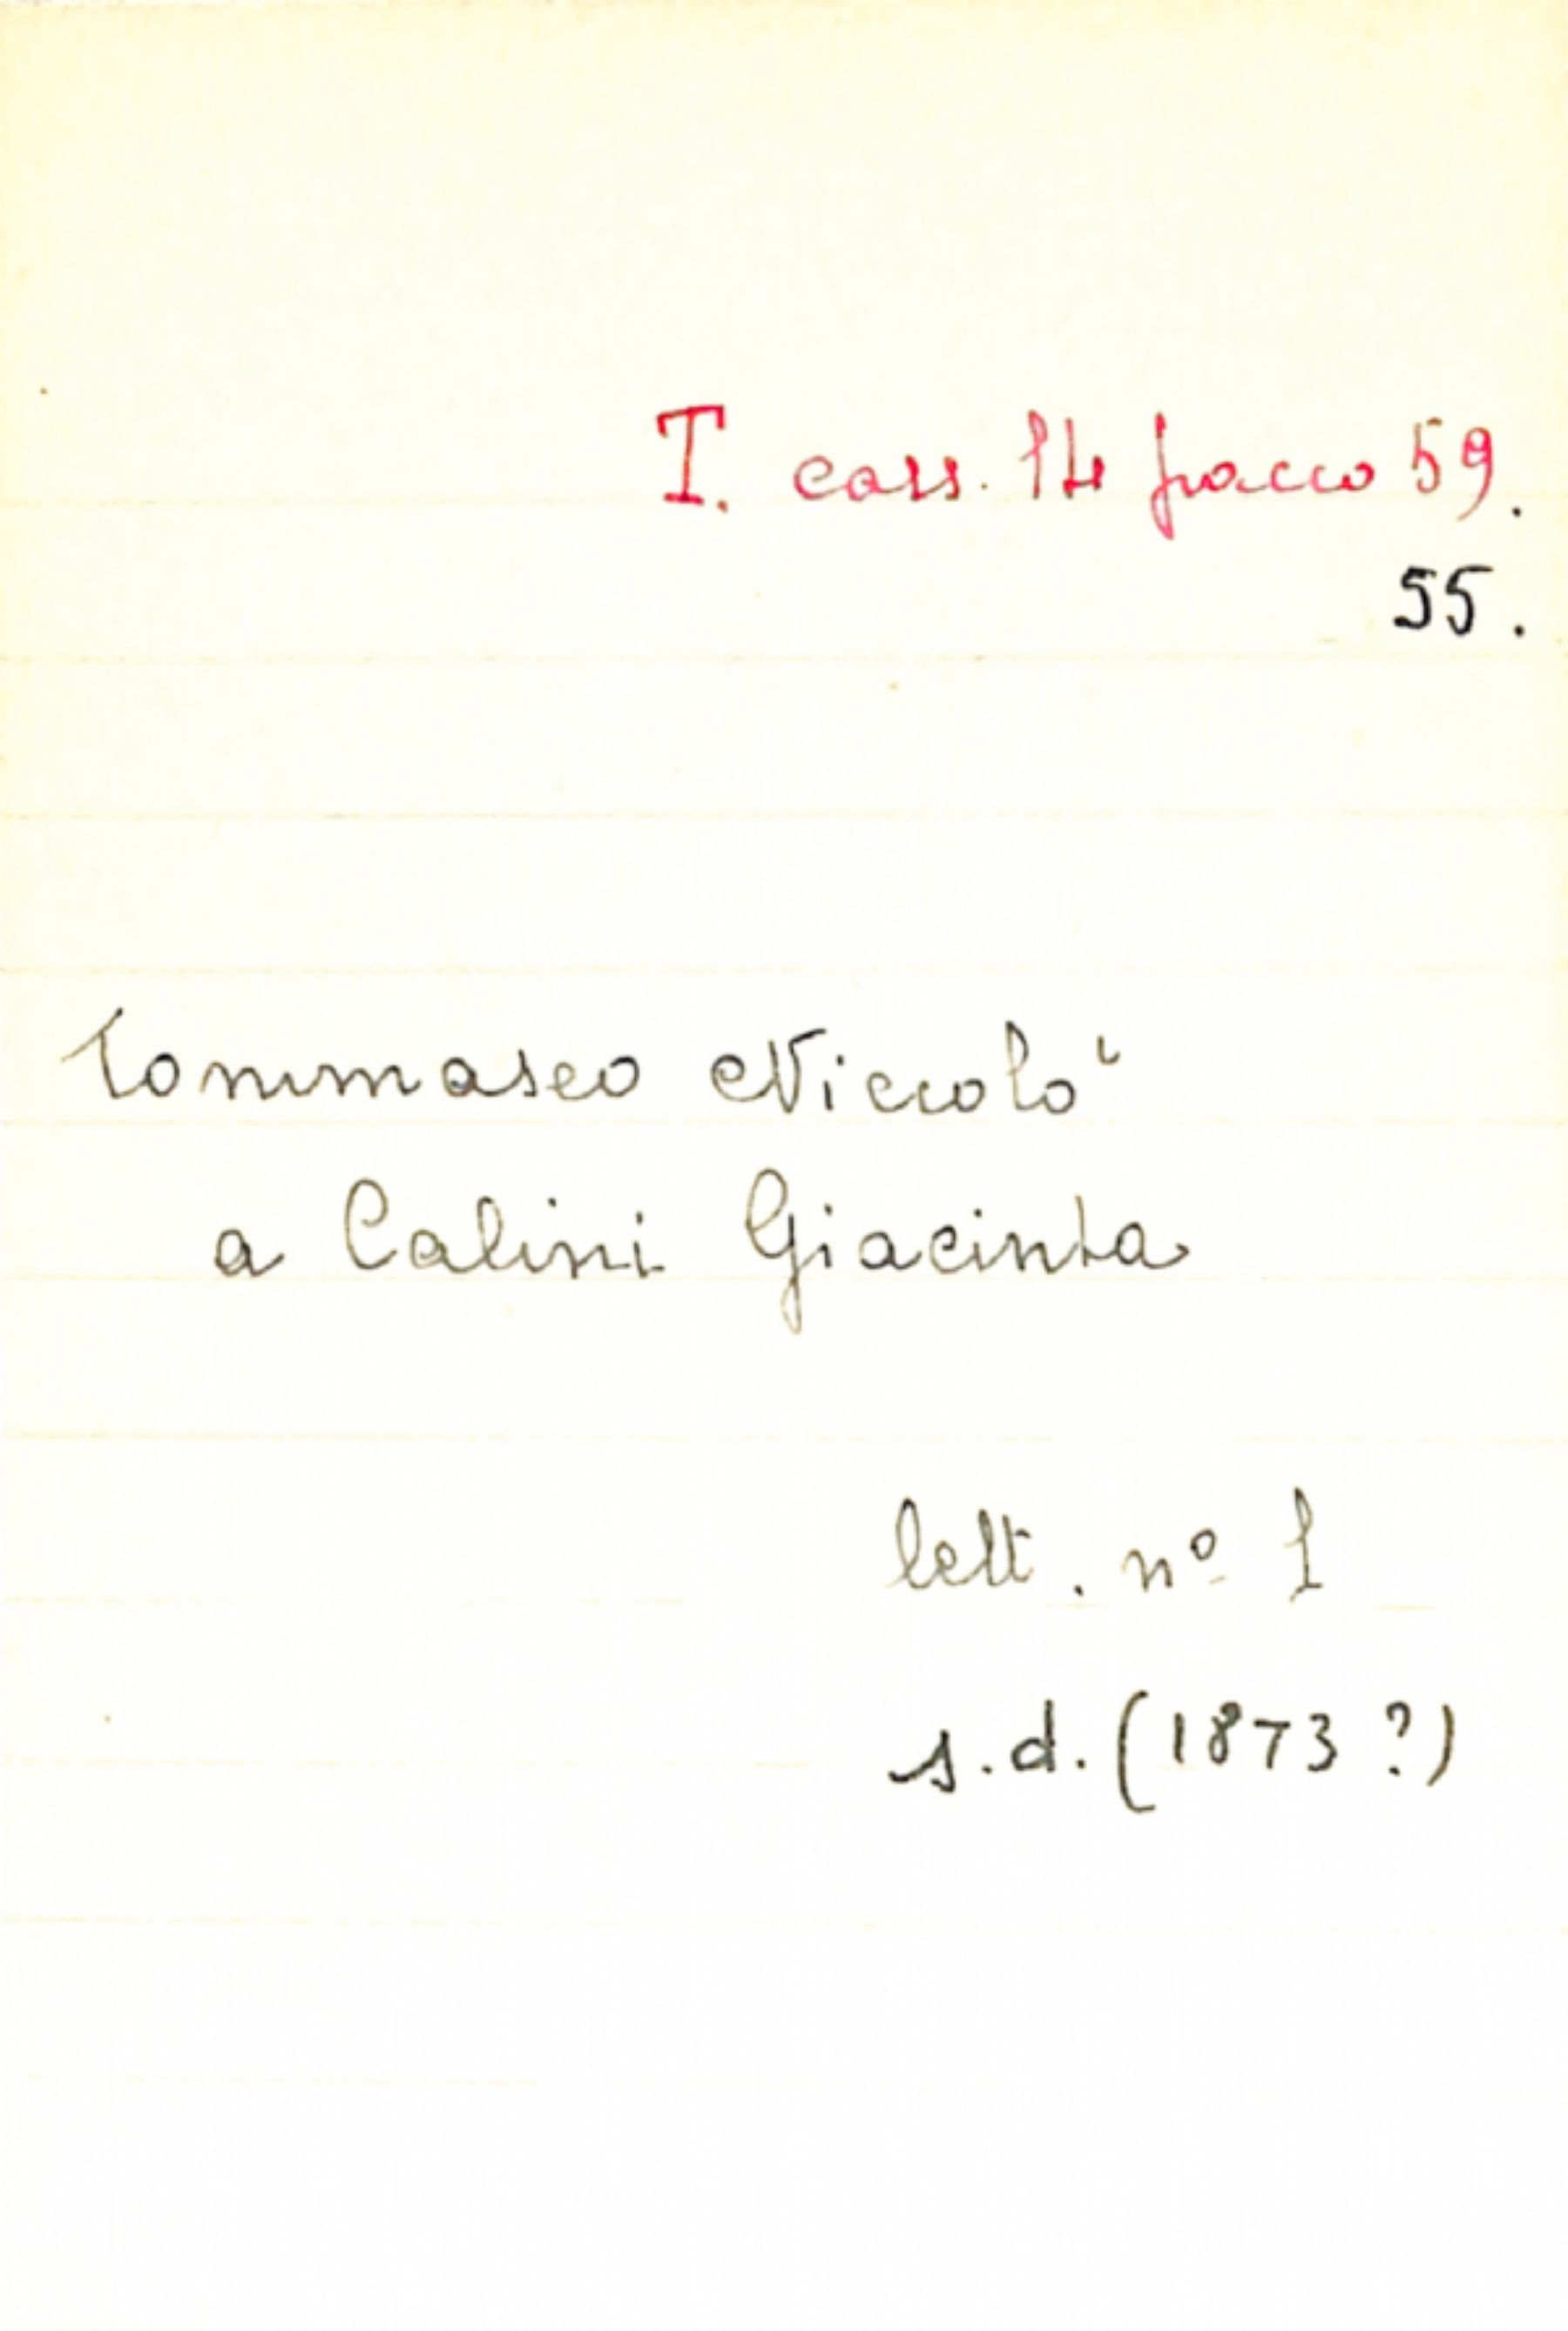 T. cass. 14 pacco 59.
55.
Tommaseo Niccolò
a Calini Giacinta
lett. nº 1
s.d. (1873 ?)